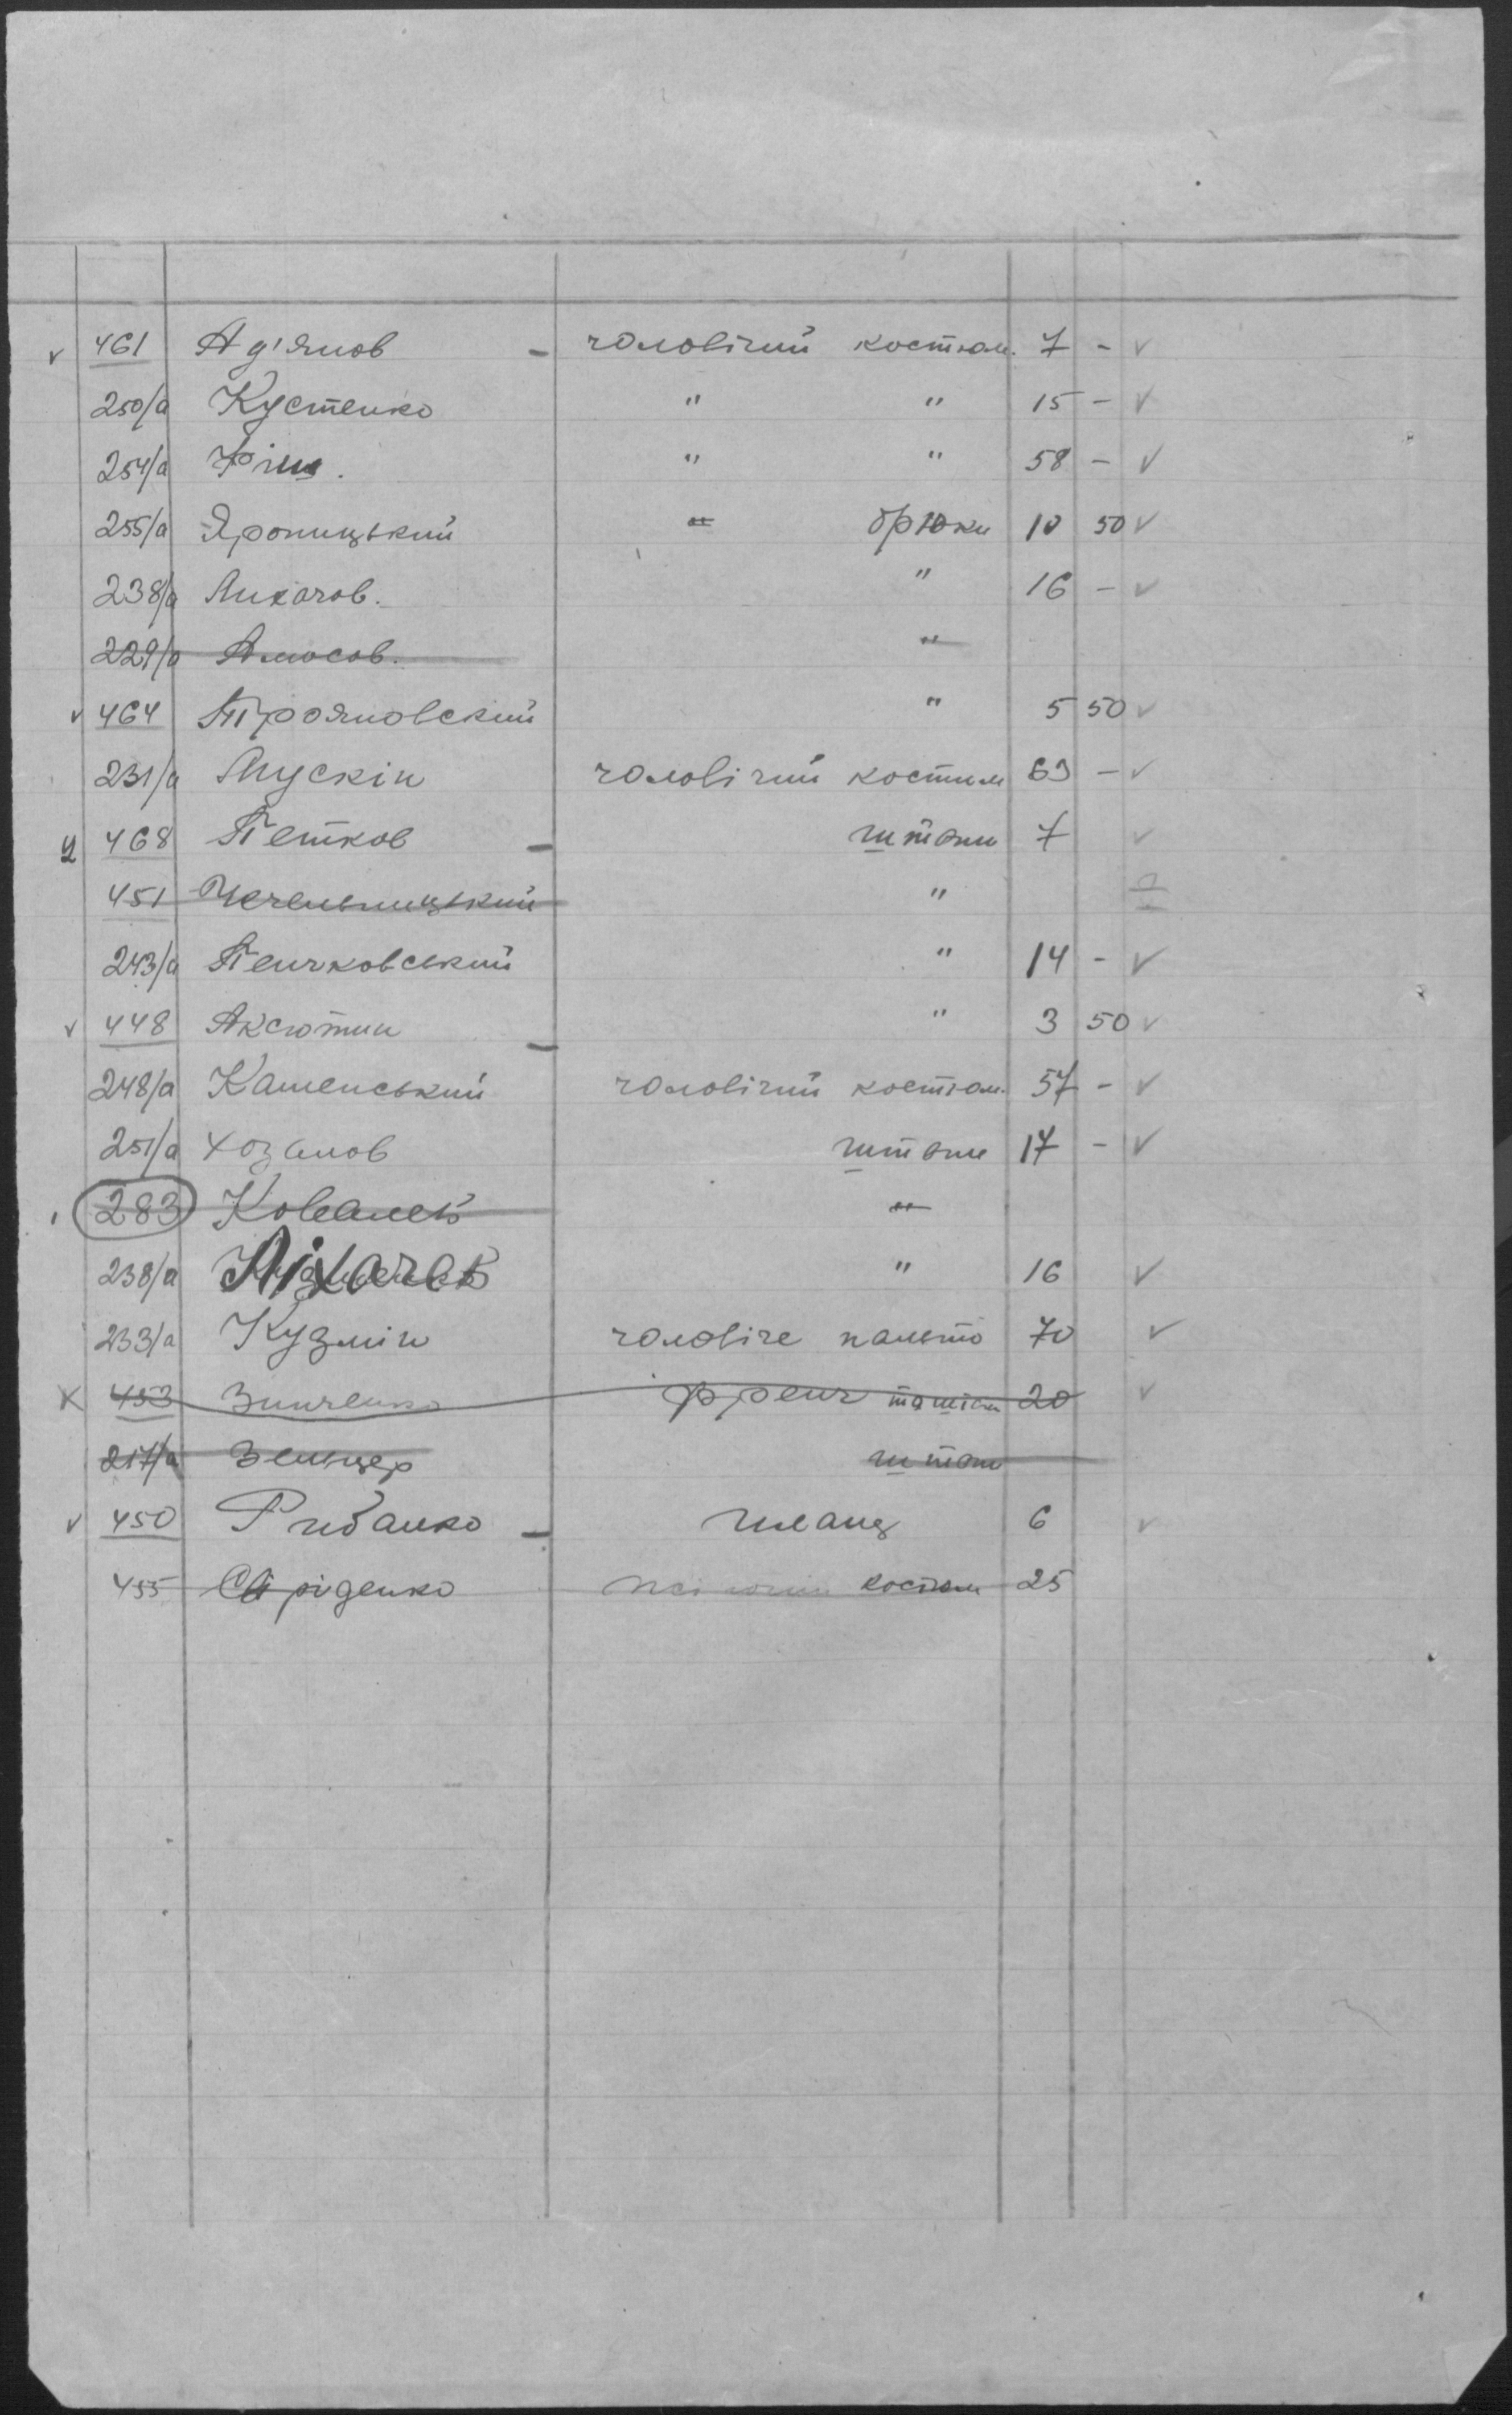 v 461 Ад'янов - чоловічий костюм. 7 - v
250/а Кустенко " " 15 - v
254/а " " 58 - v
255/а Яроницький " брюки 10 50 v
238/а Лихачов. " 16 - v
229/а Амосов. "
v 464 Трояновський " 5 50 v
231/а Мускін чоловічий костюм 63 - v
468 Петков - штани 7 v
451 Чечельницький "
243/а Пенчковський " 14 - v
v 448 Аксютин - " 3 50 v
248/а Каменський чоловічий костюм. 57 - v
251/а Хозанов штани 17 - v
283 Ковалев "
238/а Ліхачов " 16 v
233/а Кузмін чоловіче пальто 70 v
х 453 Зинченко френч 20 v
217/а Зельцер штани
v 450 Рибалко - 6 v
455 Свіріденко костюм 25